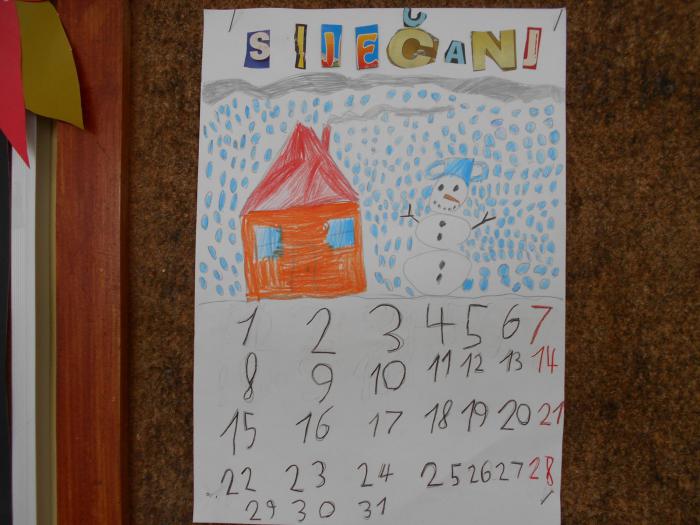 SIJEČANJ
1 2 3 4 5 6 7
8 9 10 11 12 13 14
15 16 17 18 19 20 21
22 23 24 25 26 27 28
29 30 31